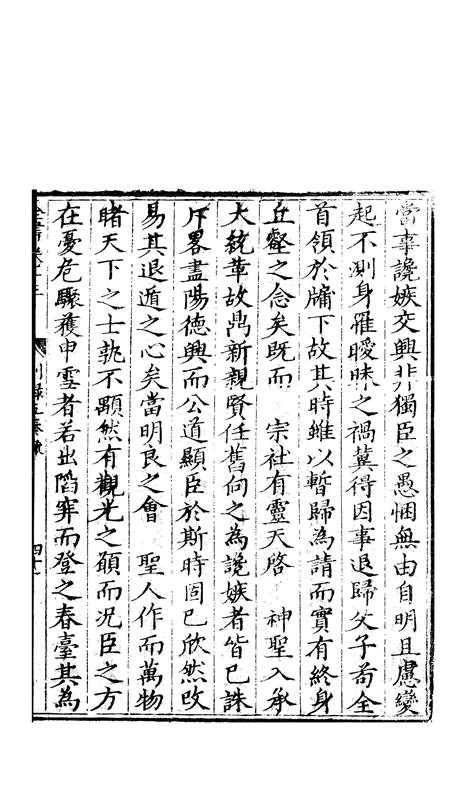 當事讒嫉交興非獨臣之愚悃無由自明且慮變
起不測身罹曖昧之禍冀得因事退歸父子苟全
首領於牖下故其時雖以暫歸為請而實有終身
丘壑之念矣既而 宗社有靈天啓 神聖入承
大統革故鼎新親賢任舊向之為讒嫉者皆已誅
斥畧盡陽德興而公道顯臣於斯時固已欣然改
易其退遁之心矣當明良之會 聖人作而萬物
睹天下之士孰不顒然有觀光之願而況臣之方
在憂危驟獲申雪者若出陷穽而登之春臺其為
別錄五奏疏
四十